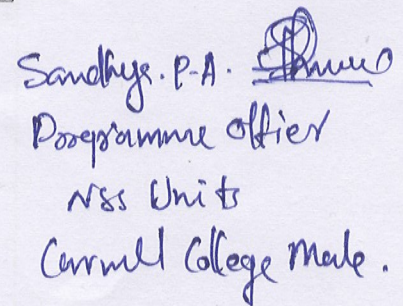 Sandhya. P-A.
Programme Officer
NSS Units
Carmel College Mala.